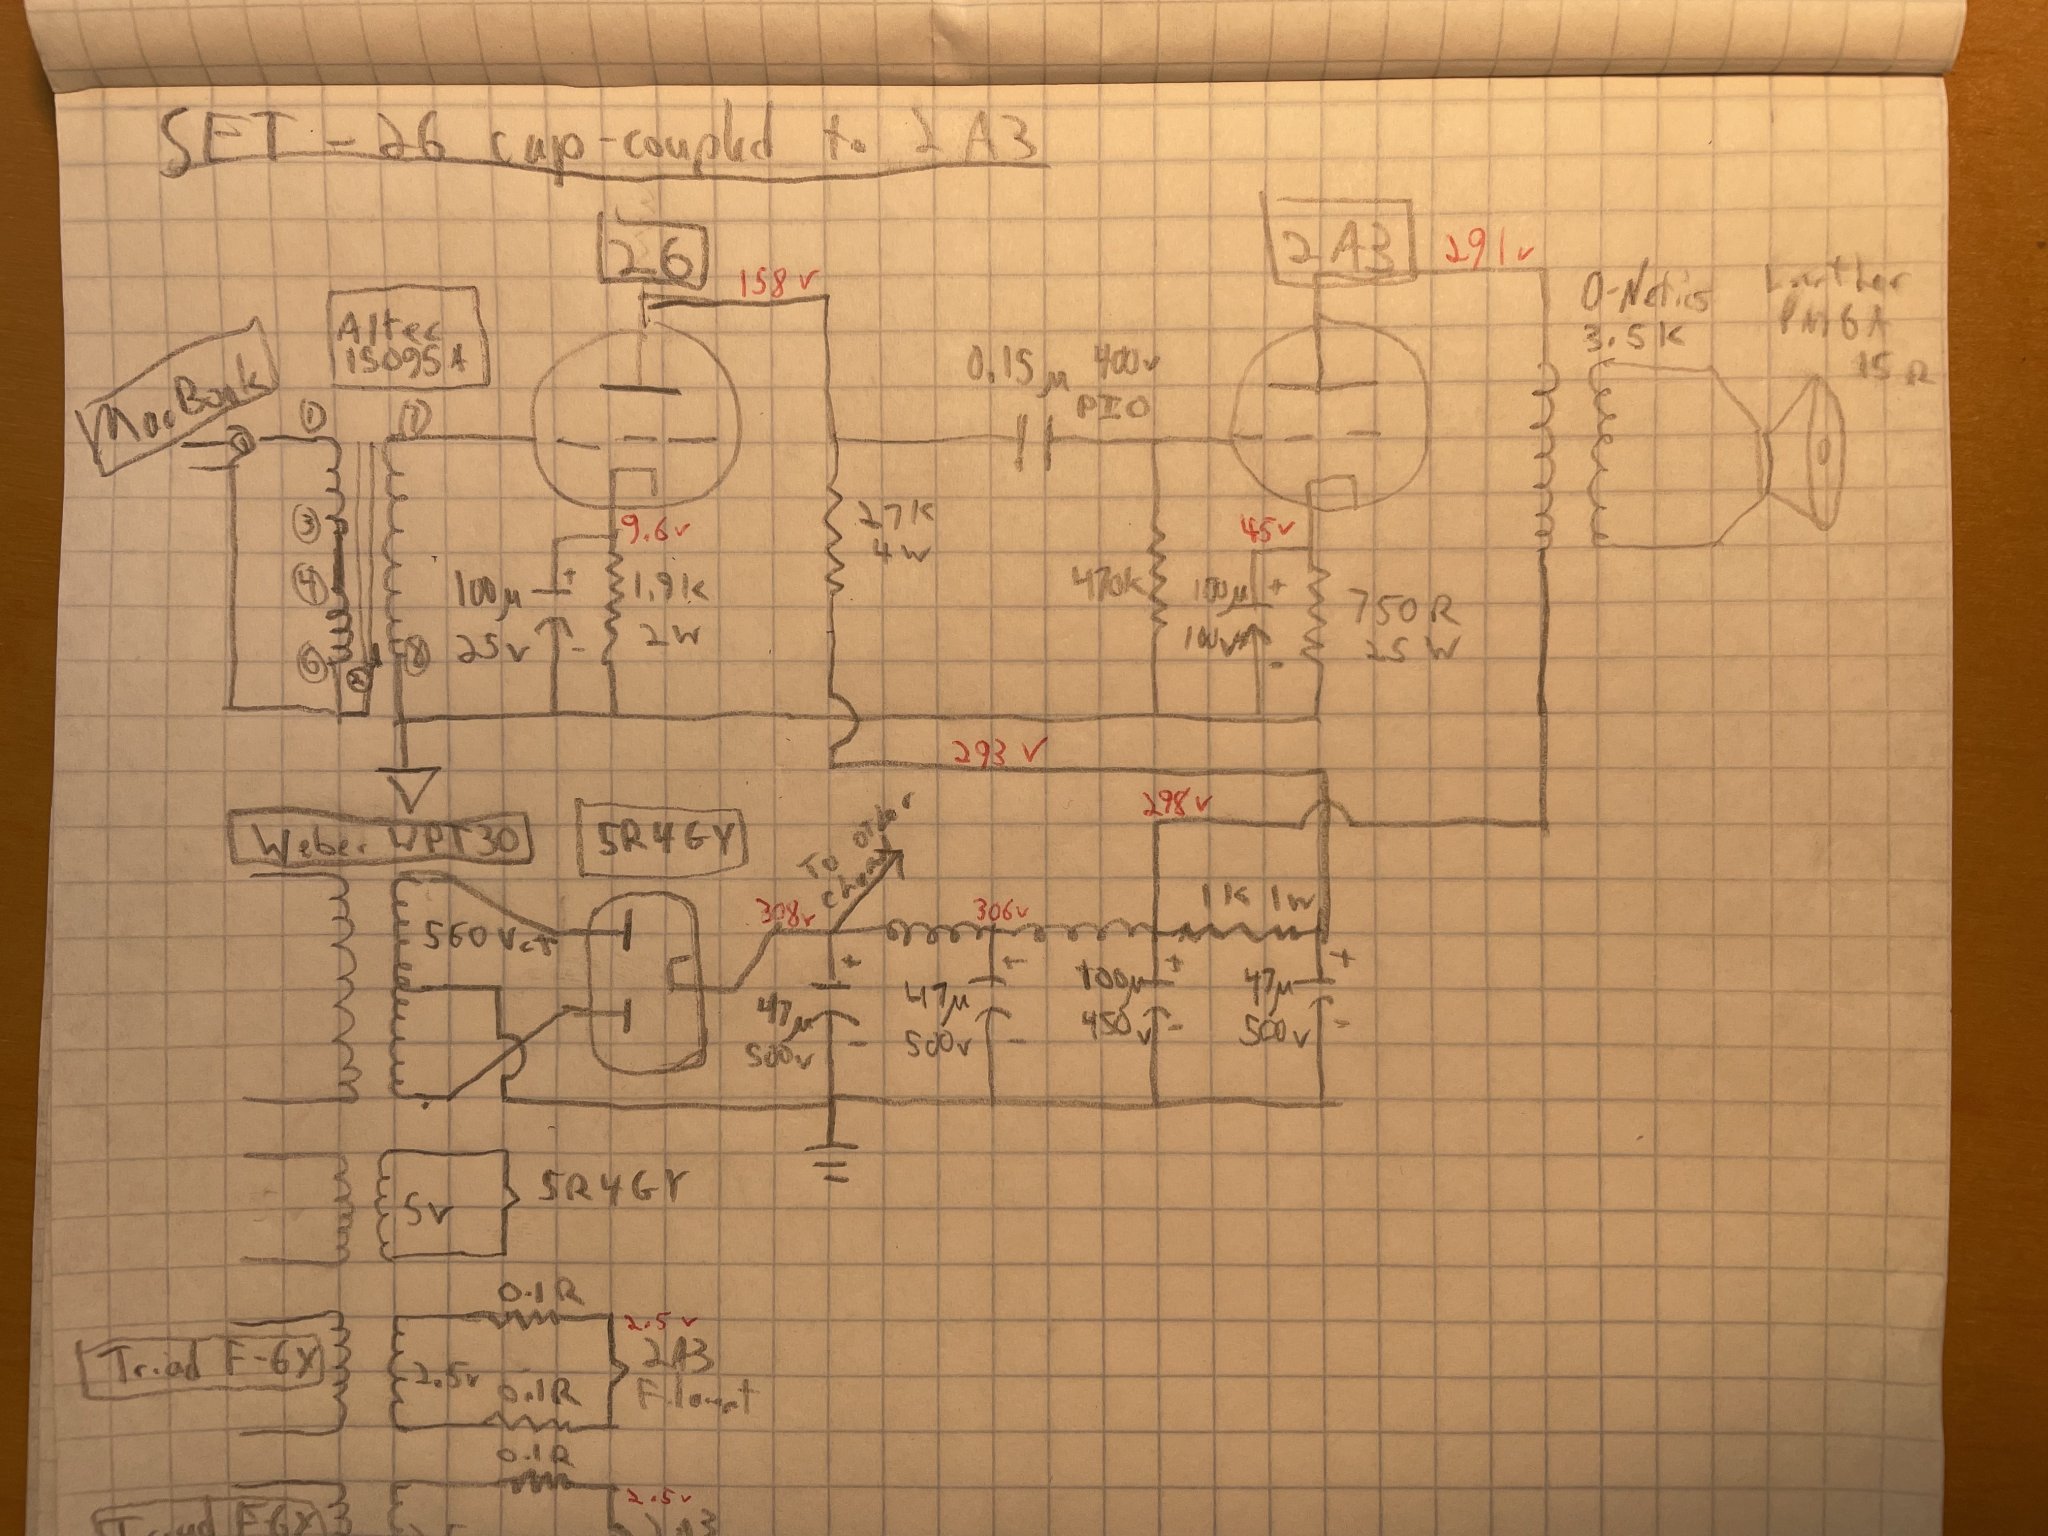 SET - 26 cap-coupled to 2A3
26
158v
2A3
291v
O-Netics
3.5K
Lowther
PM6A
15R
Altec
15095A
MacBook
1
7
0.15μ 400v
PIO
3
4
6
2
8
9.6v
100μ +
25v -
1.9K
2W
27K
4W
470K
45v
100μ +
100v
-
750R
25W
293v
298v
Weber WPT30
5R4GY
To other
channel
560vct
308v
306v
1K 1W
+
47μ
500v
-
+
47μ
500v
-
+
100μ
450v
-
+
47μ
500v
-
5v
5R4GY
0.1R
Triad F-6X
2.5v
0.1R
2.5v
2A3
Filament
0.1R
Triad F-6X
2.5v
2A3